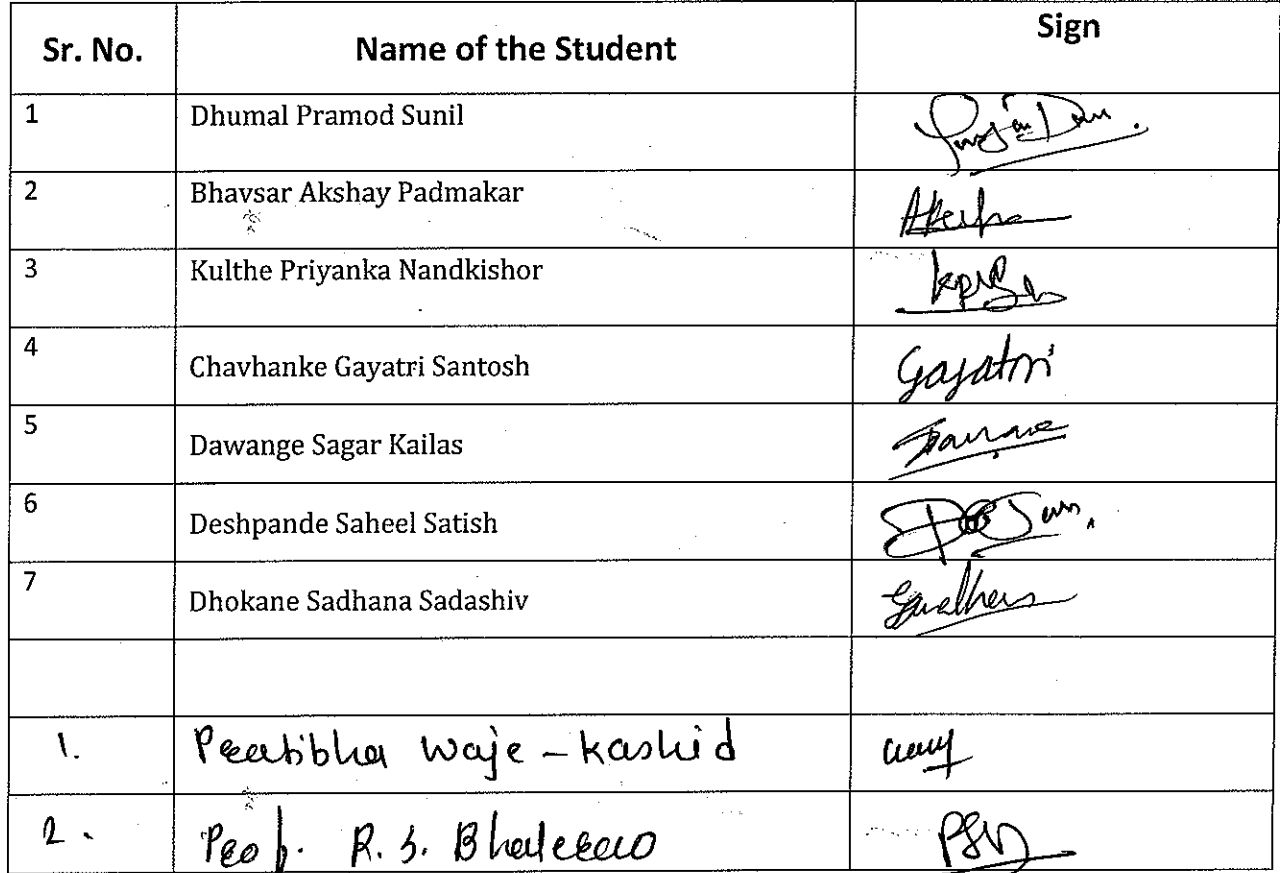 Sr. No. Name of the Student Sign
1 Dhumal Pramod Sunil
2 Bhavsar Akshay Padmakar
3 Kulthe Priyanka Nandkishor
4 Chavhanke Gayatri Santosh Gayatri
5 Dawange Sagar Kailas
6 Deshpande Saheel Satish
7 Dhokane Sadhana Sadashiv
1. Pratibha Waje - Kashid
2. Prof. R. S. Bhalerao